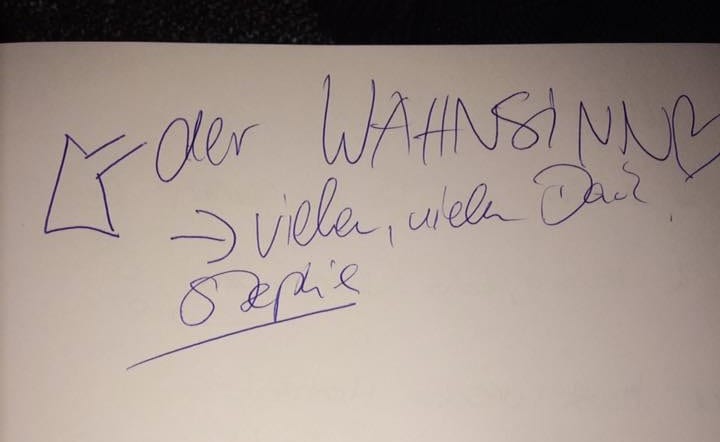 der WAHNSINN
→ vielen, vielen Dank!
Stephie